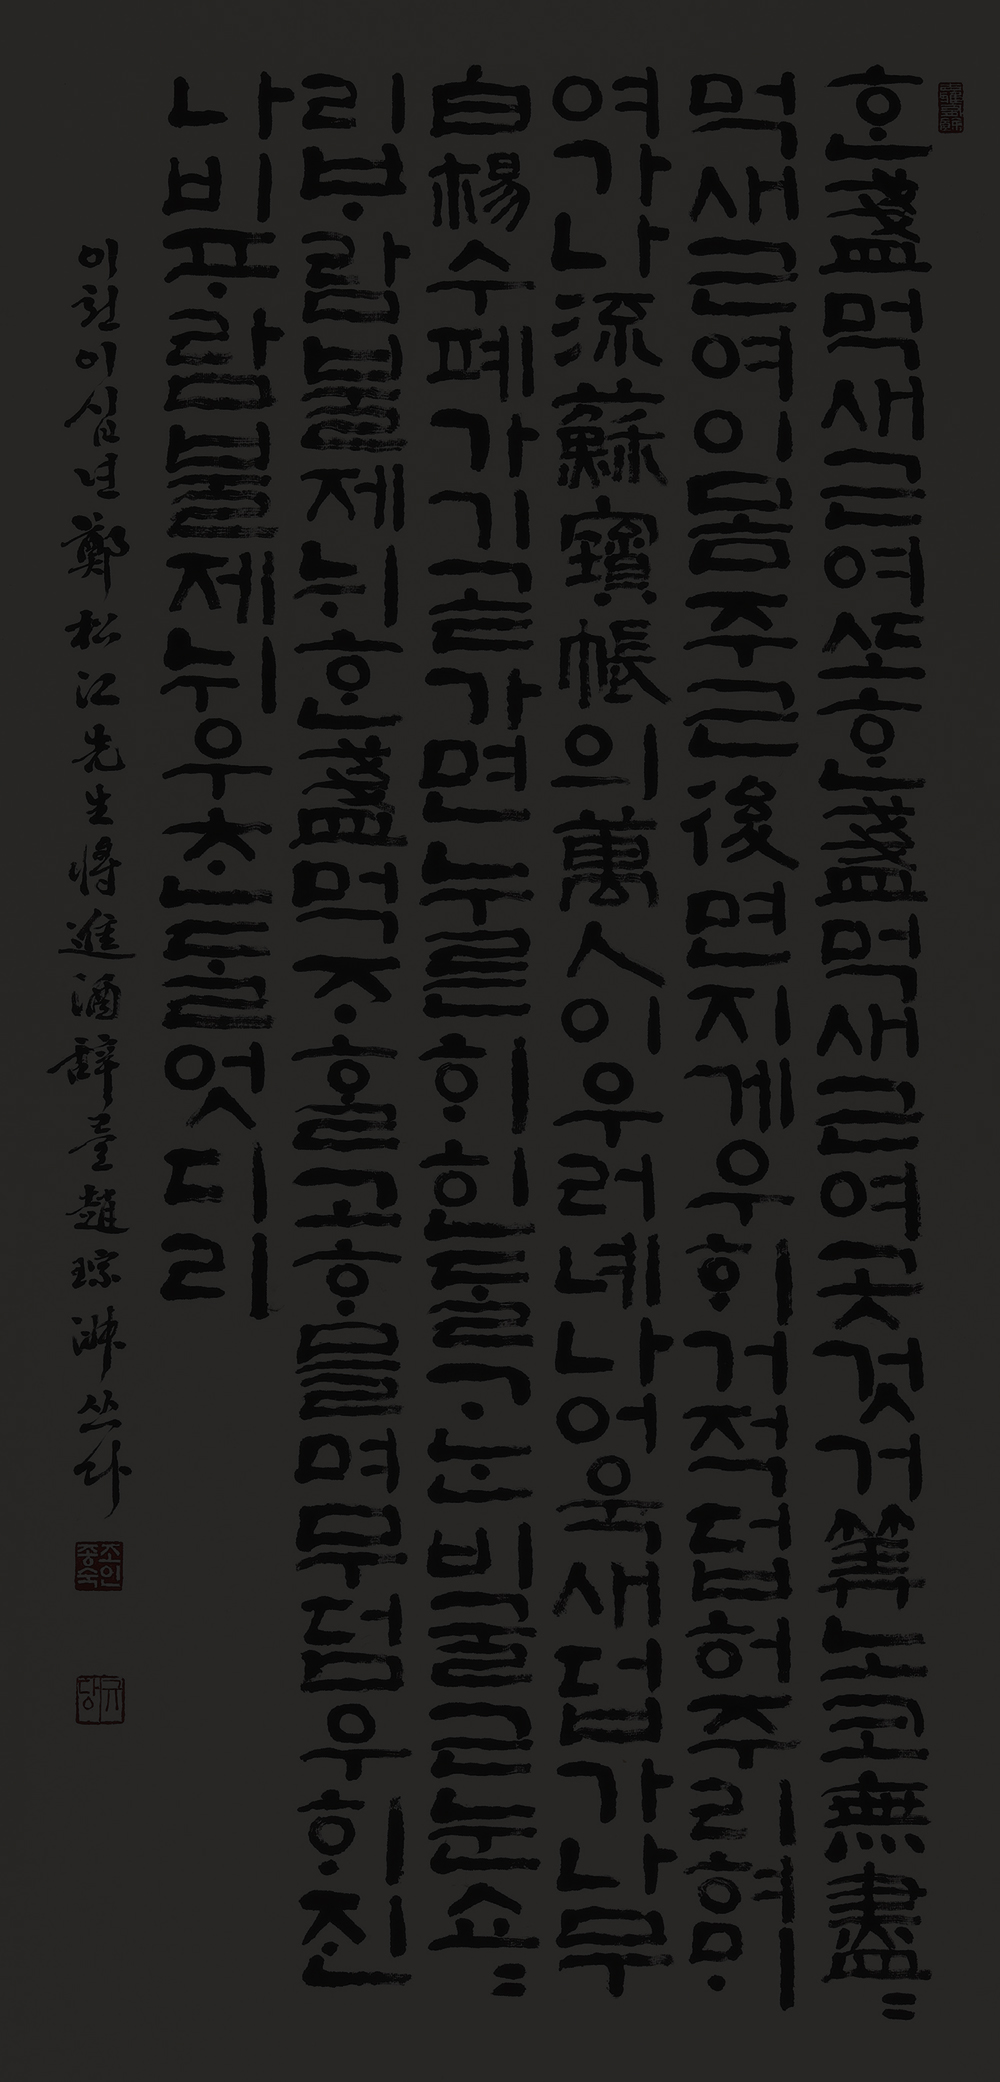 ᄒᆞᆫ盞먹새근여ᄯᅩᄒᆞᆫ盞먹새근여곳것거算노코無盡〃
먹새근여이몸주근後면지게우ᄒᆡ거적덥허주리혀ᄆᆡ
여가나流蘇寶帳의萬人이우러녜나어욱새덥가나무
白楊수폐가기곧가면누른ᄒᆡᄒᆡᆫᄃᆞᆯᄀᆞᄂᆞᆫ비굴근눈쇼〃
리ᄇᆞ람불제뉘ᄒᆞᆫ盞먹ᄌᆞᄒᆞᆯ고ᄒᆞ믈며무덤우ᄒᆡᄌᆡᆫ
나비ᄑᆞ람불제뉘우ᄎᆞᆫᄃᆞᆯ엇디리
이천이십년鄭松江先生將進酒辭壹趙琮淑쓰다
조종숙인
규당